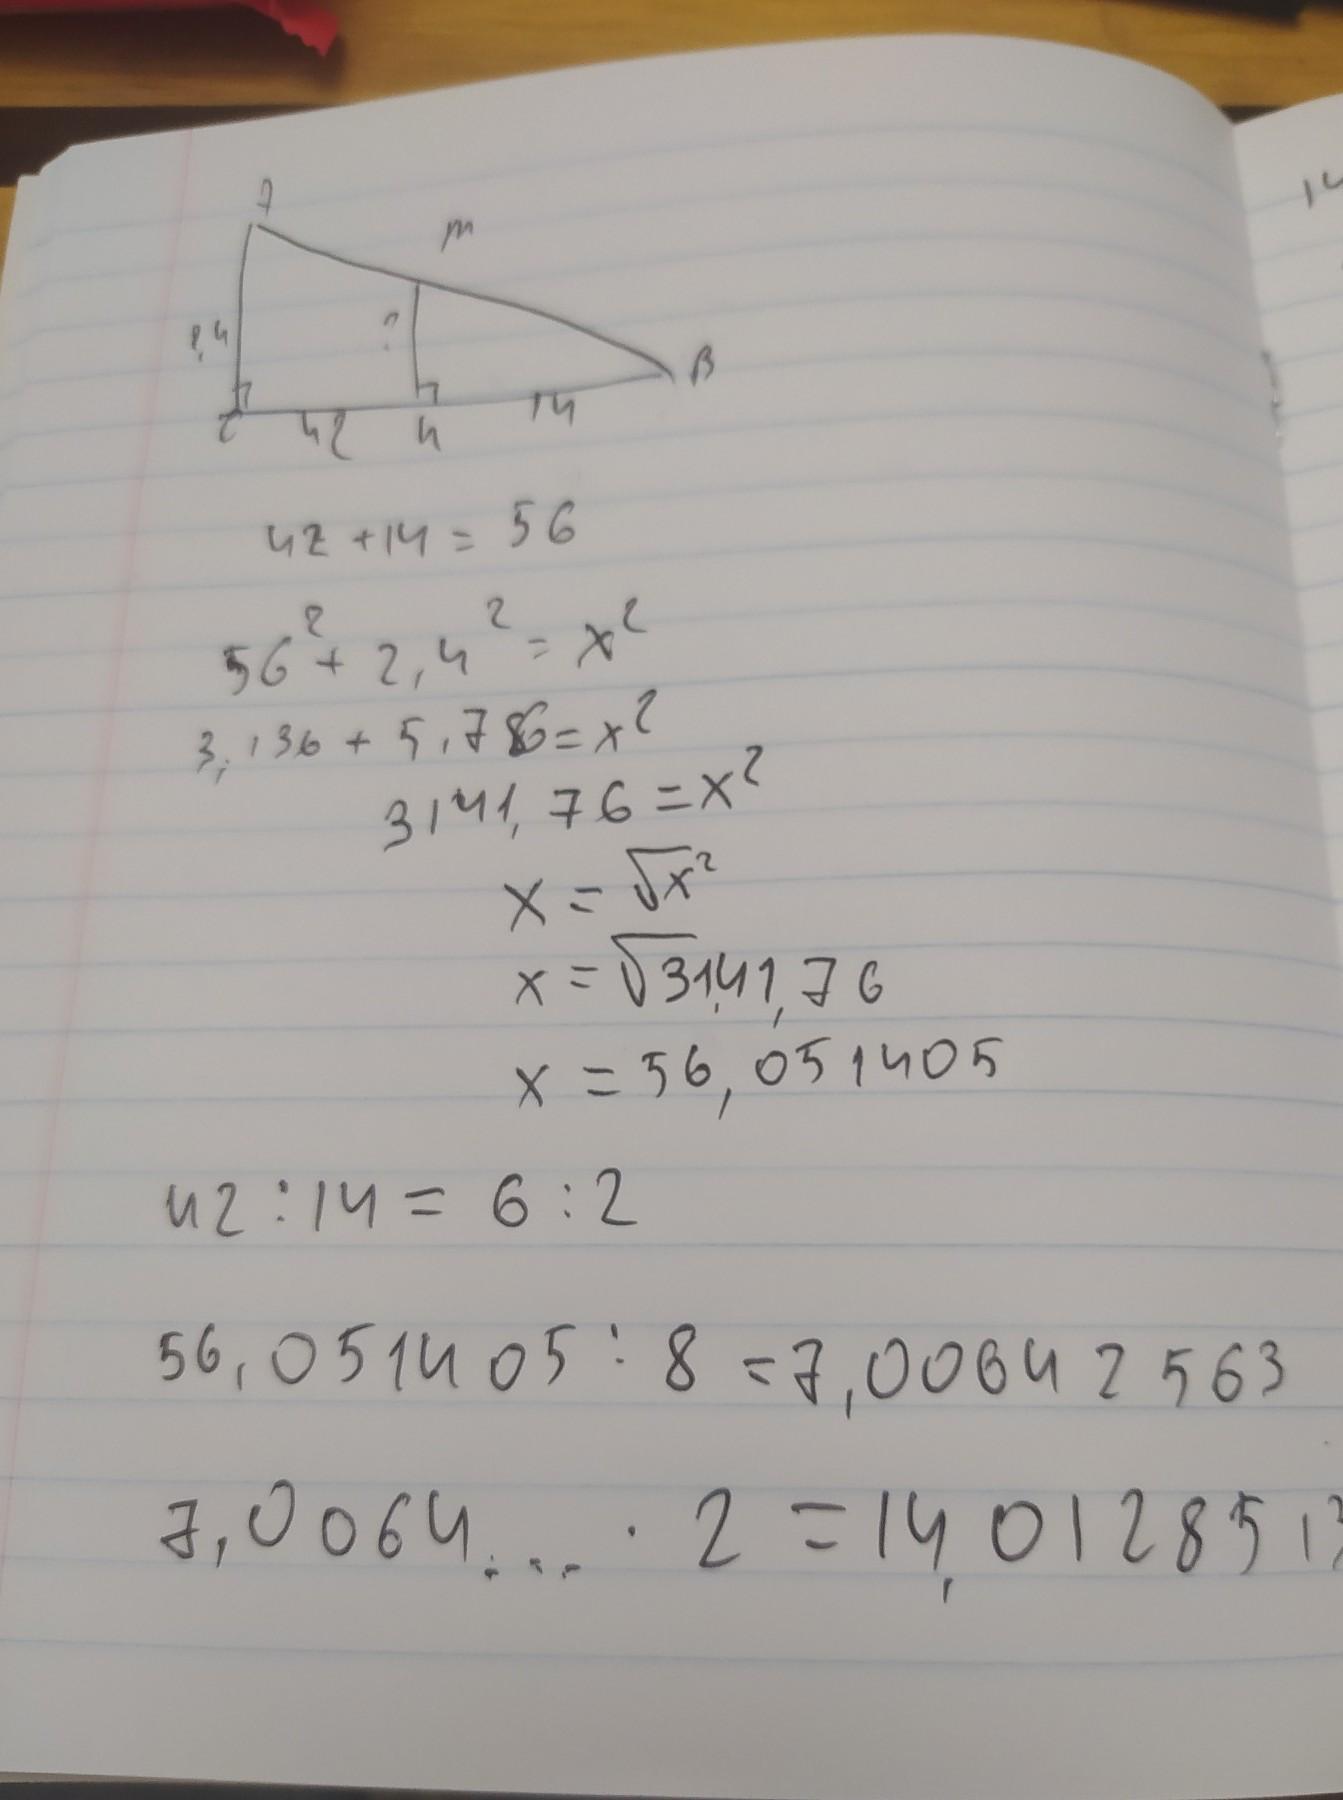 m
?
B
42
14
42 + 14 = 56
56² + 2,4² = x²
3,136 + 5,76 = x²
3141,76 = x²
x = √x²
x = √3141,76
x = 56,051405
42 : 14 = 6 : 2
56,051405 : 8 = 7,00642563
7,0064... · 2 = 14,0128513